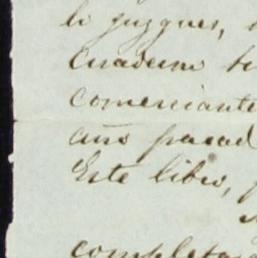 li juzgues,
Cuaderno
comerciante
año pasad
Este libro,
completa